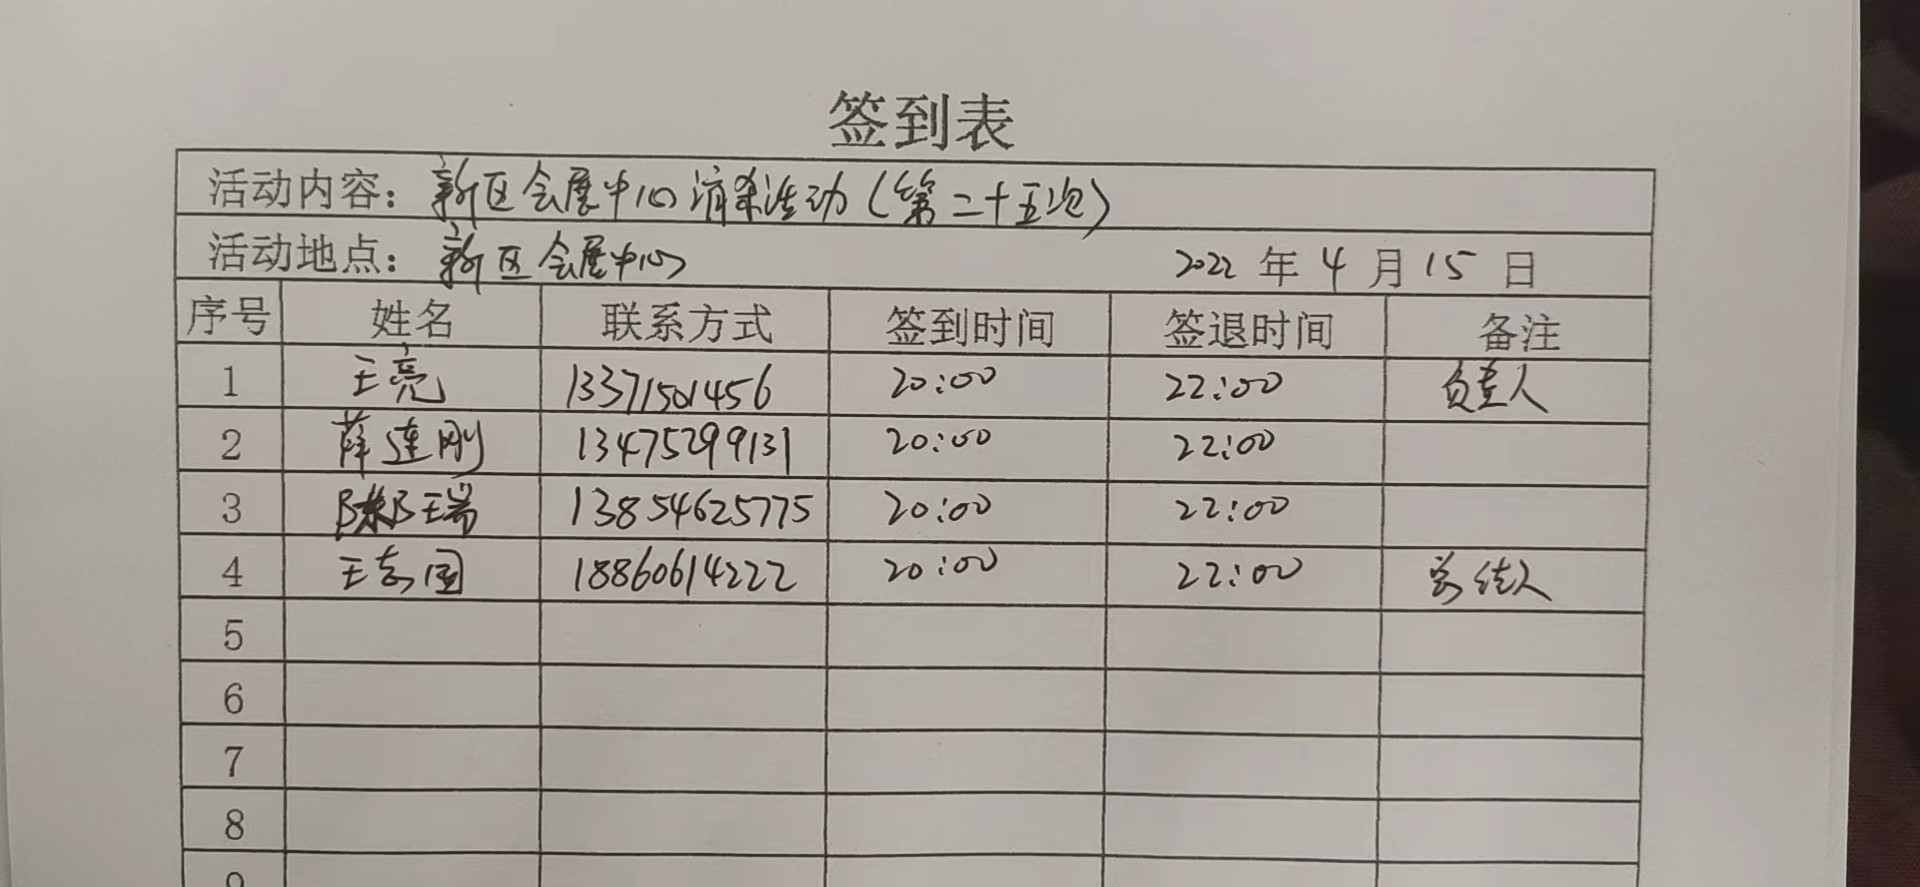 签到表
活动内容：新区会展中心消杀活动（第二十五次）
活动地点：新区会展中心 2022年4月15日
序号 姓名 联系方式 签到时间 签退时间 备注
1 王亮 13371501456 20:00 22:00 负责人
2 薛连刚 13475299131 20:00 22:00
3 瑞 13854625775 20:00 22:00
4 王志国 18860614222 20:00 22:00 总结人
5
6
7
8
9